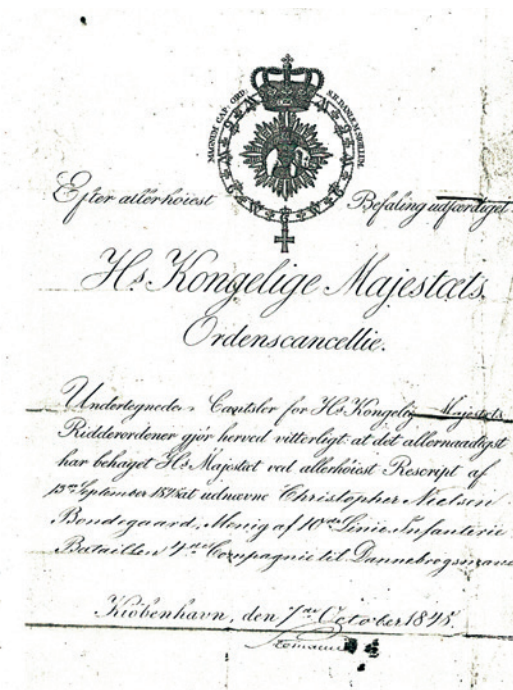 MAGNUM CAP: ORD: S.R. DANI EM. SIGILLUM.
Efter allerhöiest Befaling udfærdiget
Hs. Kongelige Majestæts
Ordenscancellie.
Undertegnede, Cantsler for Hs. Kongelig Majestæts
Ridderordener gjör herved vitterligt at det allernaadigst
har behaget Hs. Majestæt ved allerhöiest Rescript af
September at udnævne Christopher Nielsen
Bondegaard, Menig af 10de Linie Infanterie
Bataillon 4de Compagnie til Dannebrogsmand
Kiöbenhavn, den 7de October 1848.